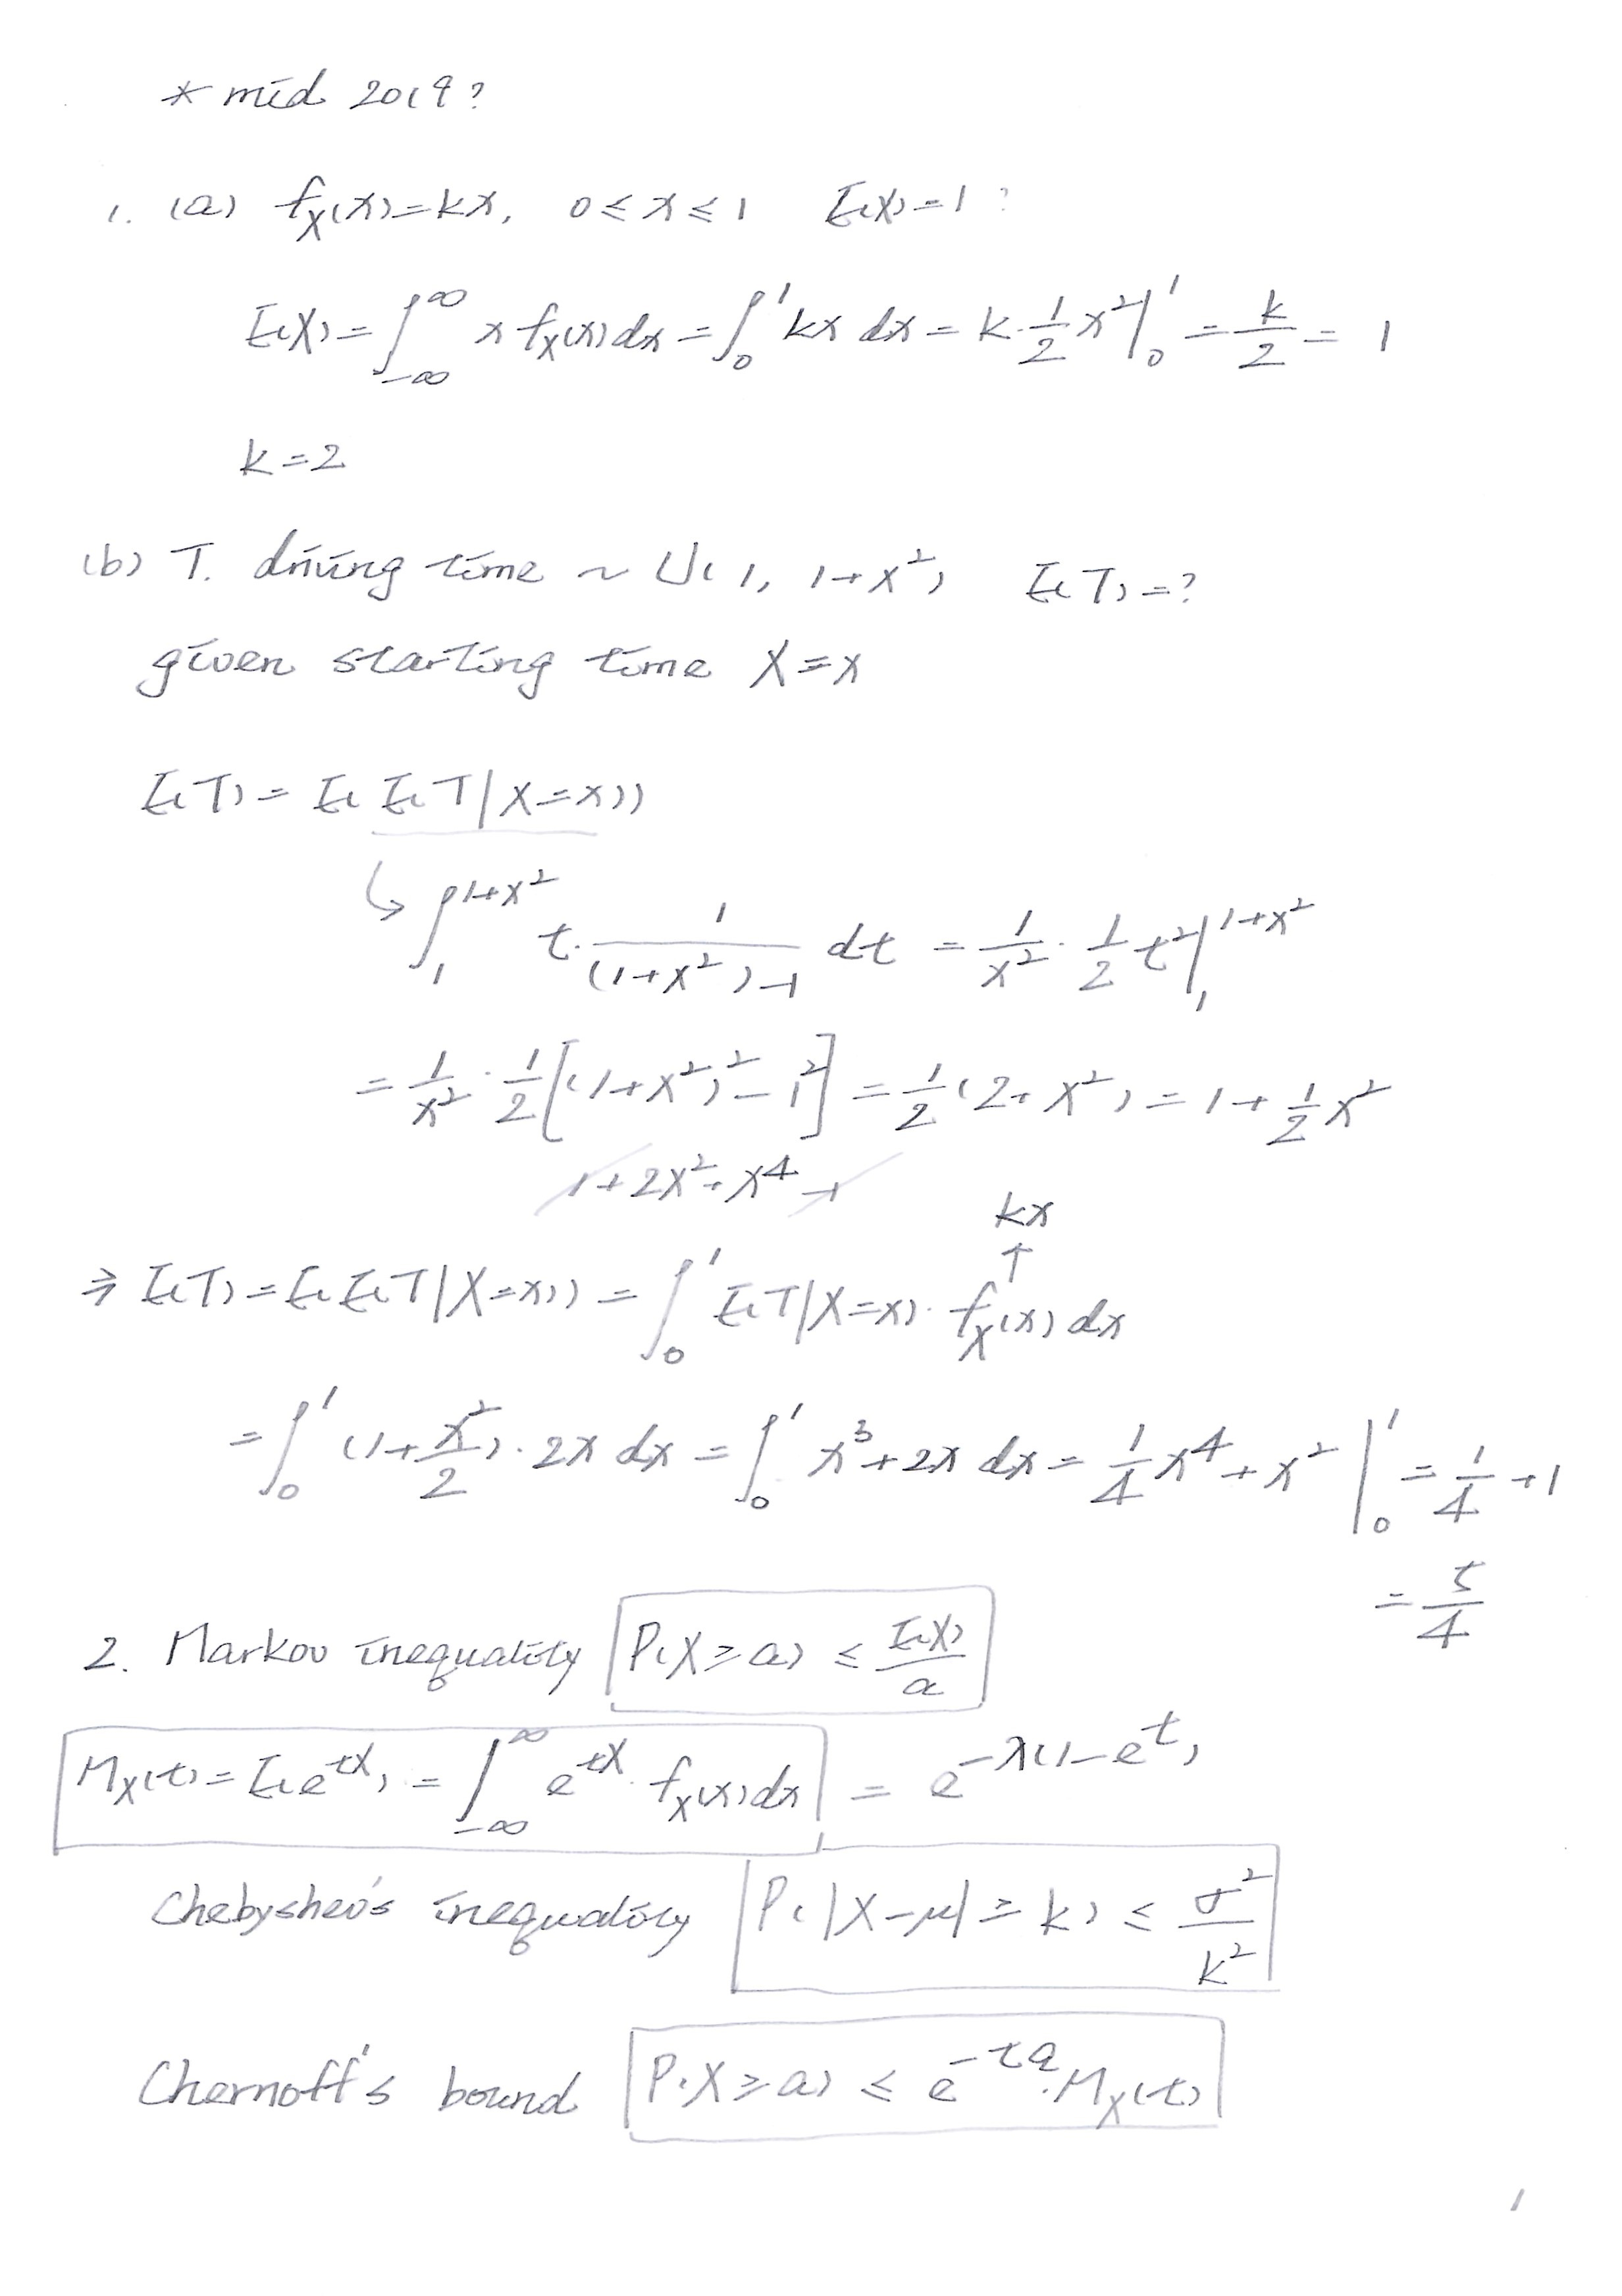 * mid 2019?
1. (a) f_X(x)=kx, 0≤x≤1 E(X)=1?
E(X)=∫_{-∞}^{∞} x f_X(x)dx=∫_0^1 kx dx=k·1/2 x²|_0^1=k/2=1
k=2
(b) T. driving time ~ U(1, 1+x²) E(T)=?
given starting time X=x
E(T)=E(E(T|X=x))
↳∫_1^{1+x²} t·1/((1+x²)-1) dt=1/x²·1/2 t²|_1^{1+x²}
=1/x²·1/2[(1+x²)²-1²]=1/2(2+x²)=1+1/2 x²
1+2x²+x⁴-1
kx
↑
⇒E(T)=E(E(T|X=x))=∫_0^1 E(T|X=x)·f_X(x)dx
=∫_0^1 (1+x²/2)·2x dx=∫_0^1 x³+2x dx=1/4 x⁴+x²|_0^1=1/4+1
=5/4
2. Markov inequality P(X≥a)≤E(X)/a
M_X(t)=E(e^{tX})=∫_{-∞}^{∞} e^{tX}·f_X(x)dx=e^{-λ(1-e^t)}
Chebyshev's inequality P(|X-μ|≥k)≤σ²/k²
Chernoff's bound P(X≥a)≤e^{-ta}·M_X(t)
1